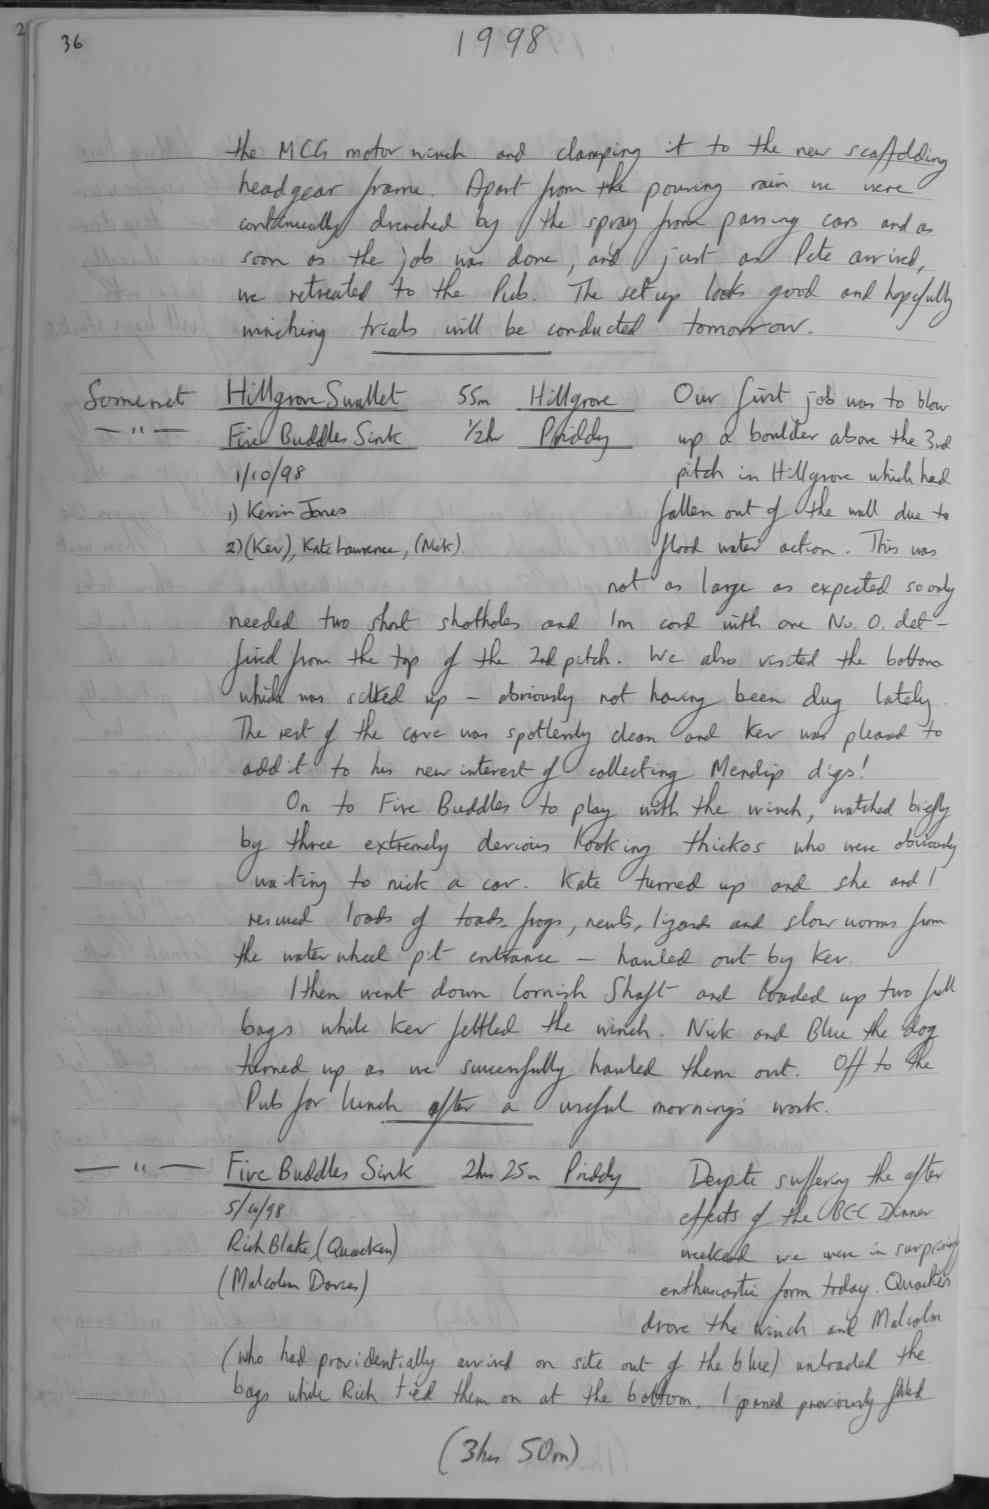 36
1998
the MCG motor winch and clamping it to the new scaffolding
headgear frame. Apart from the pouring rain we were
continually drenched by the spray from passing cars and as
soon as the job was done, and just as Pete arrived,
we retreated to the Pub. The set up looks good and hopefully
winching trials will be conducted tomorrow.
Somerset Hillgrove Swallet 55m Hillgrove Our first job was to blow
— " — Five Buddles Sink ½hr Priddy up a boulder above the 3rd
1/10/98 pitch in Hillgrove which had
1) Kevin Jones fallen out of the wall due to
2) (Kev), Kate Lawrence, (Nick). flood water action. This was
not as large as expected so only
needed two short shotholes and 1m cord with one No. 0. det -
fired from the top of the 2nd pitch. We also visited the bottom
which was silted up - obviously not having been dug lately.
The rest of the cave was spotlessly clean and Kev was pleased to
add it to his new interest of collecting Mendip digs!
On to Five Buddles to play with the winch, watched briefly
by three extremely devious looking thickos who were obviously
waiting to nick a car. Kate turned up and she and I
rescued loads of toads, frogs, newts, lizards and slow worms from
the water wheel pit entrance - hauled out by Kev.
I then went down Cornish Shaft and loaded up two full
bags while Kev fettled the winch. Nick and Blue the dog
turned up as we successfully hauled them out. Off to the
Pub for lunch after a useful morning's work.
— " — Five Buddles Sink 2hrs 25m Priddy Despite suffering the after
5/10/98 effects of the BEC Dinner
Rich Blake, (Quackers) weekend we were in surprising
(Malcolm Davies) enthusiastic form today. Quackers
drove the winch and Malcolm
(who had providentially arrived on site out of the blue) unloaded the
bags while Rich tied them on at the bottom. I passed previously filled
(3hrs 50m)